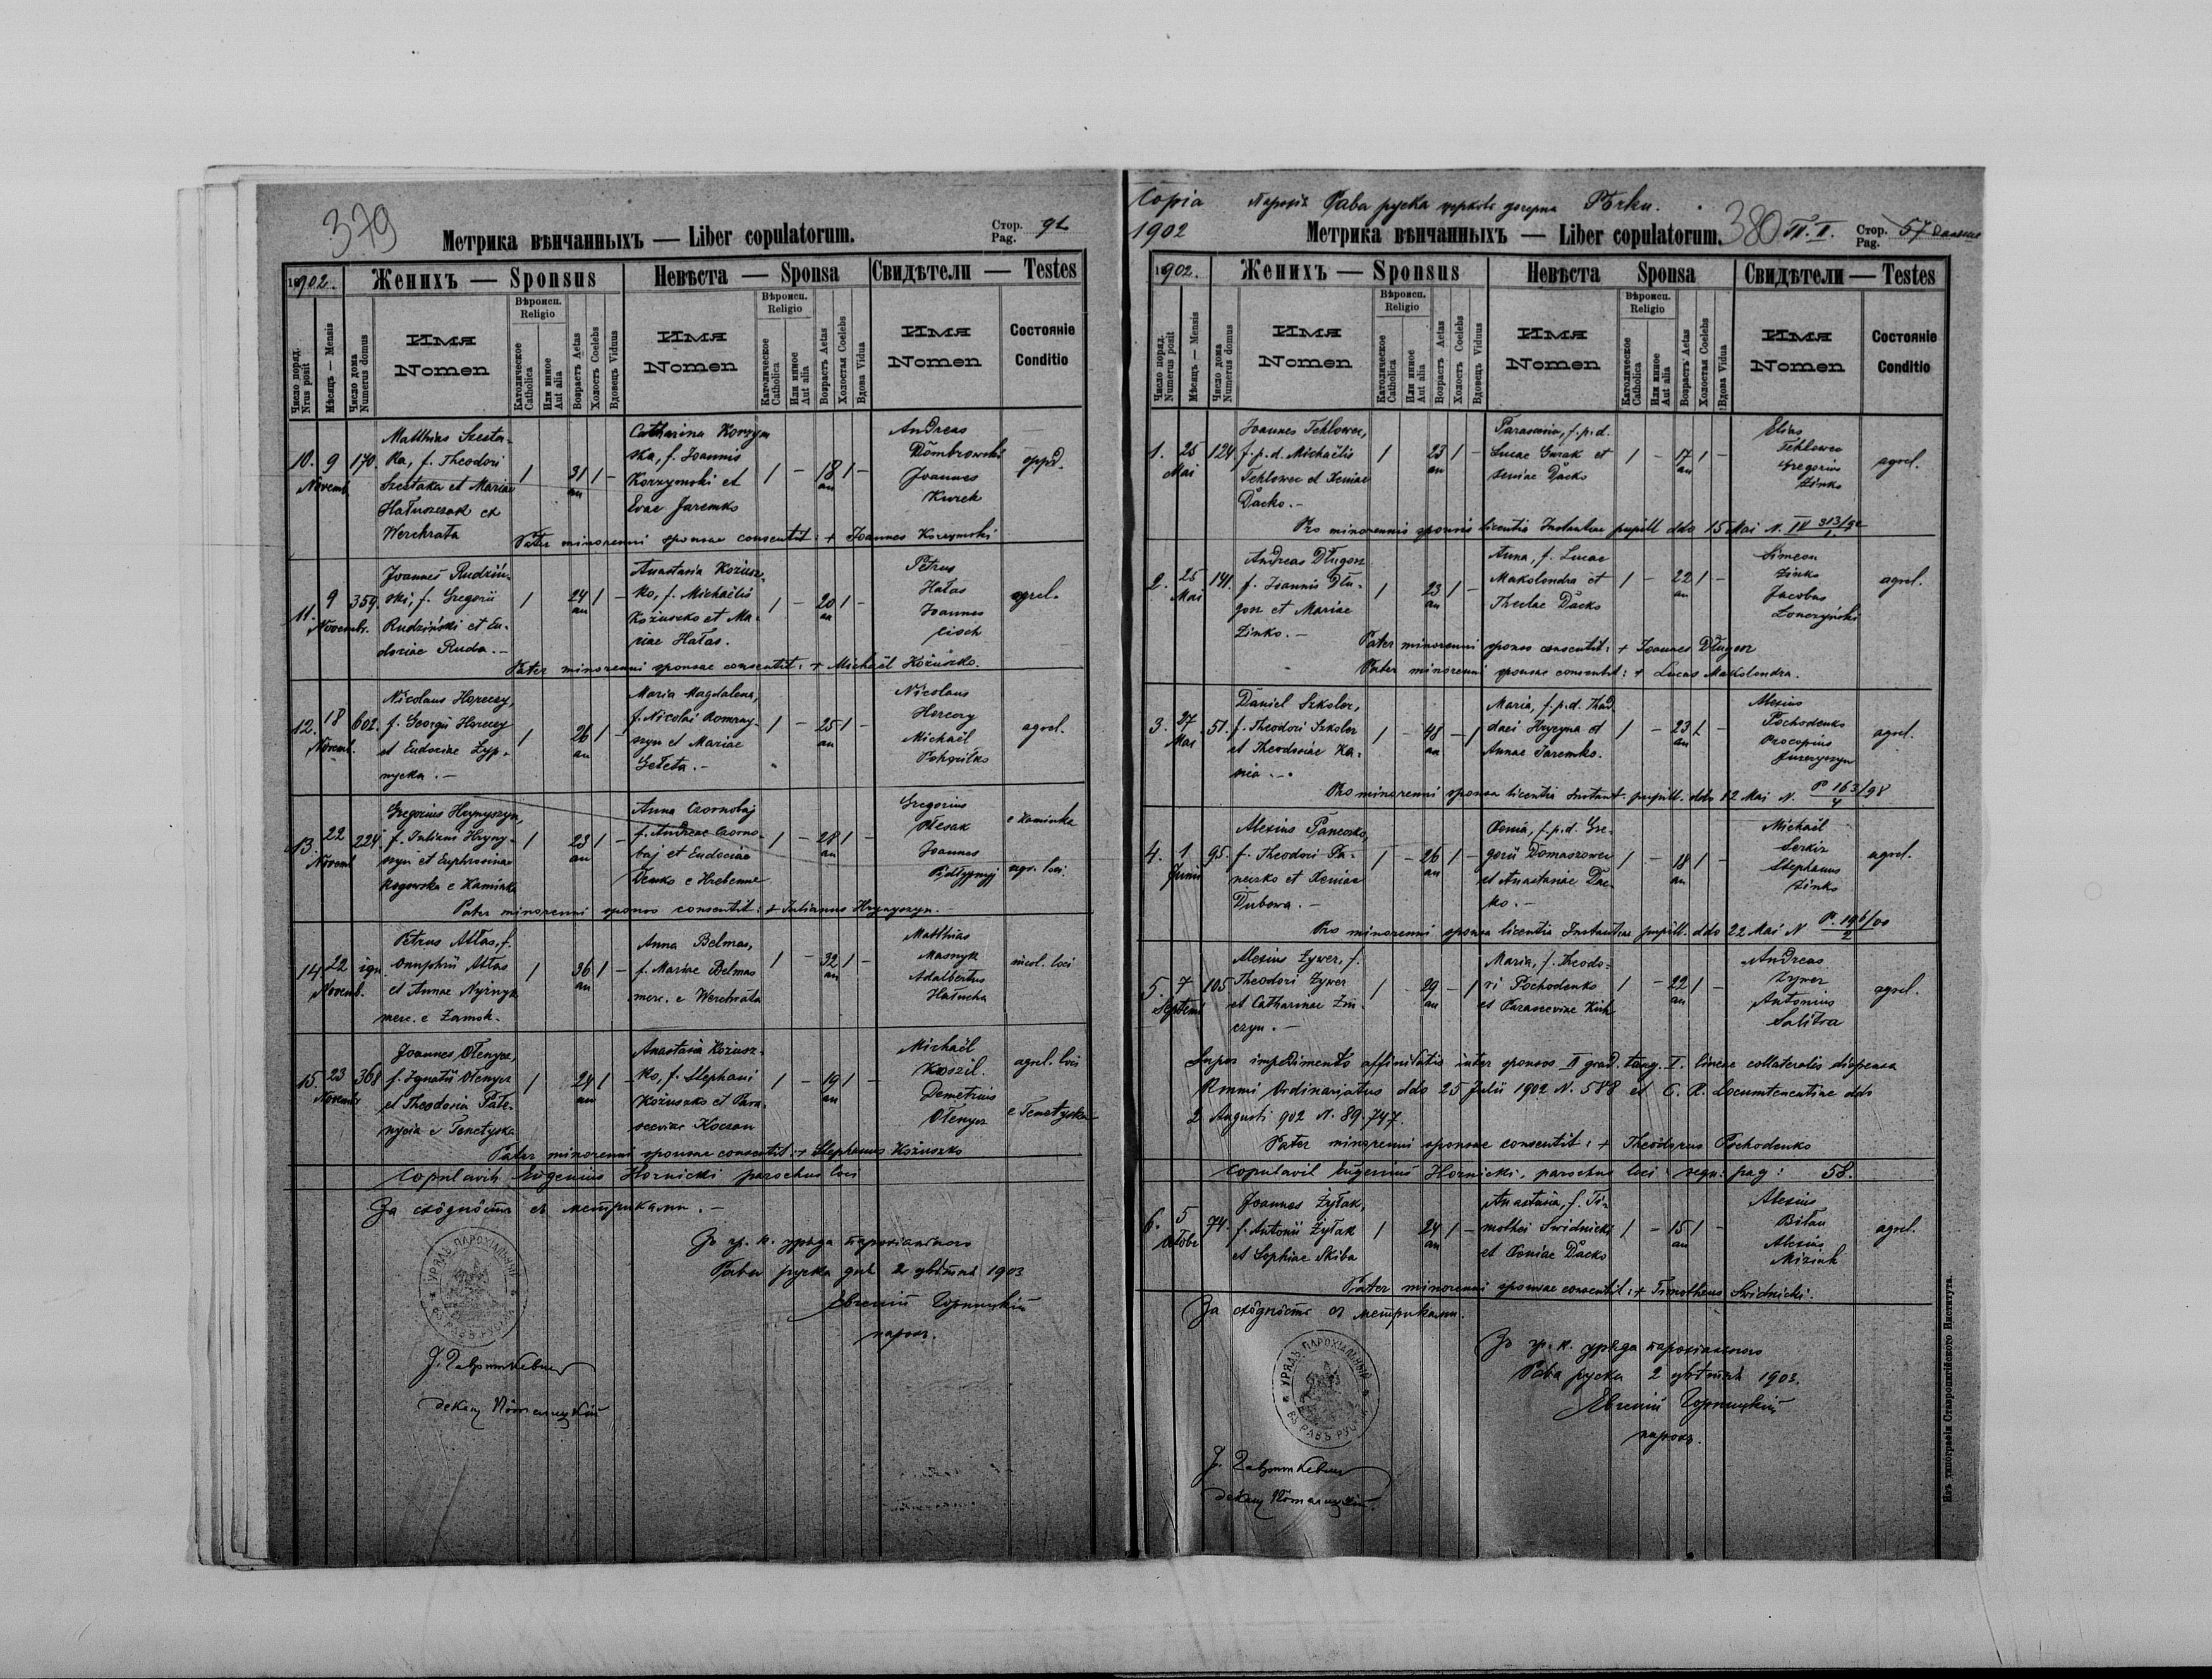 379
Метрика вѣнчанныхъ — Liber copulatorum.
Стор.
Pag.
92
1902.
Женихъ — Sponsus
Невѣста — Sponsa
Свидѣтели — Testes
Число поряд.
Nrus posit
Мѣсяцъ — Mensis
Число дома
Numerus domus
Имя
Nomen
Вѣроисп.
Religio
Католическое
Catholica
Или инное
Aut alia
Возрастъ Aetas
Холостъ Coelebs
Вдовецъ Viduus
Имя
Nomen
Вѣроисп.
Religio
Католическое
Catholica
Или инное
Aut alia
Возрастъ Aetas
Холостая Coelebs
Вдова Vidua
Имя
Nomen
Состояніе
Conditio
10. 9 Novemb. 170.
Matthias Szesta-
ka, f. Theodori
Szestaka et Mariae
Hałuszczak ex
Werchrata
1 31 an 1 –
Catharina Korzym
ska, f. Joannis
Korzymski et
Evae Jaremko
1 – 18 an 1 –
Andreas
Dombrowski
Joannes
Kurek
oppd.
Pater minorenni sponsae consentit: + Joannes Korzymski
11. 9 Novembr. 359.
Joannes Rudziń-
ski, f. Gregorii
Rudziński et Eu-
doxiae Ruda. –
1 24 an 1 –
Anastasia Kożusz-
ko, f. Michaëlis
Kożuszko et Ma-
riae Hałas.
1 – 20 an 1 –
Petrus
Hałas
Joannes
Cisch
agrel.
Pater minorenni sponsae consentit: + Michaël Kożuszko.
12. 18 Novemb. 602.
Nicolaus Horeczy,
f. Georgii Horeczy
et Eudociae Zyp-
nycka. –
1 26 an 1 –
Maria Magdalena,
f. Nicolai Romray-
szyn et Mariae
Gełeta. –
1 – 25 an 1 –
Nicolaus
Horeczy
Michaël
Pohoriłko
agrel.
13. 22 Novemb 224
Gregorius Hrynyszyn,
f. Juliani Hryny-
szyn et Euphrosinae
Rogowska e Kamionka
1 23 an 1 –
Anna Czornobaj
f. Andreae Czorno-
baj et Eudociae
Demko e Hrebenne
1 – 28 an 1 –
Gregorius
Plesak
Joannes
Pidhyrnyj
e Kamionka
agr. loci.
Pater minorenni sponso consentit: + Julianus Hrynyszyn. –
14. 22 Novemb. ign.
Petrus Atłas, f.
Onuphrii Atłas
et Annae Nyżnyk
merc. e Zamok.
1 36 an 1 –
Anna Belmas,
f. Mariae Belmas
merc. e Werchrata
1 – 32 an 1 –
Matthias
Masnyk
Adalbertus
Hałucha
incol. loci
15. 23 Novembr 368
Joannes Ołenycz,
f. Ignatii Ołenycz
et Theodosia Pate-
nycia e Tenetyska
1 24 an 1 –
Anastasia Kożusz-
ko, f. Stephani
Kożuszko et Para-
sceviae Koczan
1 – 19 an 1 –
Michaël
Koszil.
Demetrius
Ołenycz
agrel. loci
e Tenetyska
Pater minorenni sponsae consentit: + Stephanus Kożuszko
Copulavit Eugenius Hornicki parochus loci
За сходность съ метриками. –
Зъ гр. к. уряда парохіального
Рава руска дня 2 цвѣтня 1903
Евгеній Горницкій
парох.
УРЯДЪ ПАРОХІАЛЬНЫЙ
ВЪ РАВѢ РУСКОЙ
Copia
1902
Парохія Рава руска церковь дочерна Рѣчки.
Метрика вѣнчанныхъ — Liber copulatorum.
380
IV. II.
Стор.
Pag.
57
1902.
Женихъ — Sponsus
Невѣста Sponsa
Свидѣтели — Testes
Число поряд.
Numerus posit
Мѣсяцъ — Mensis
Число дома
Numerus domus
Имя
Nomen
Вѣроисп.
Religio
Католическое
Catholica
Или инное
Aut alia
Возрастъ Aetas
Холостъ Coelebs
Вдовецъ Viduus
Имя
Nomen
Вѣроисп.
Religio
Католическое
Catholica
Или инное
Aut alia
Возрастъ Aetas
Холостая Coelebs
Вдова Vidua
Имя
Nomen
Состояніе
Conditio
1. 25 Mai 124
Joannes Tehlowec,
f. p. d. Michaëlis
Tehlowec et Xeniae
Dacko. –
1 23 an 1 –
Parascevia, f. p. d.
Lucae Gurak et
Xeniae Dacko
1 – 17 an 1 –
Elias
Tehlowec
Gregorius
Zinko
agrel.
Pro minorennis sponsis licentia Instantiae pupill ddo 15 Mai N. IV 313/92
2. 25 Mai 141.
Andreas Długosz
f. Joannis Dłu-
gosz et Mariae
Zinko. –
1 23 an 1 –
Anna, f. Lucae
Makolondra et
Theclae Dacko
1 – 22 an 1 –
Simeon
Zinko
Jacobus
Lonczyński
agrel.
Pater minorenni sponso consentit: + Joannes Długosz
Pater minorenni sponsae consentit: + Lucas Makolondra.
3. 27 Mai 51.
Daniel Szkolor,
f. Theodori Szkolor
et Theodosiae Ka-
nia. –
1 – 48 an – 1
Maria, f. p. d. Thad
daei Hrycyna et
Annae Jaremko.
1 – 23 an 1 –
Alexius
Pochodenko
Procopius
Juzeryszyn
agrel.
Pro minorenni sponsa licentia Instant. pupill. ddo 12 Mai N. P 163/98 4
4. 1 Junii 95.
Alexius Panczko,
f. Theodori Pa-
neczko et Xeniae
Dubowa. –
1 – 26 an 1 –
Xenia, f. p. d. Gre-
gorii Domaszowec
et Anastasiae Dac-
ko. –
1 – 18 an 1 –
Michaël
Serkiz
Stephanus
Zinko
agrel.
Pro minorenni sponsa licentia Instantiae pupill. ddo 22 Mai N P. 196/00 2
5. 7 Septemb 105
Alexius Zywer, f.
Theodori Zywer
et Catharinae Zin-
czyn. –
1 – 29 an – 1
Maria, f. Theodo-
ri Pochodenko
et Parasceviae Kich
1 – 22 an 1 –
Andreas
Zywer
Antonius
Salitra
agrel.
Super impedimento affinitatis inter sponsos II grad. tang. I. lineae collateralis dispensa
Rmmi Ordinariatus ddo 25 Julii 1902 N. 588 et C. R. Locumtenentiae ddo
2 Augusti 902 N. 89.747.
Pater minorenni sponsae consentit: + Theodorus Pochodenko
Copulavit Eugenius Hornicki, parochus loci sequ: pag: 58.
6. 5 Octobr 74.
Joannes Żyłak,
f. Antonii Żyłak
et Sophiae Skiba
1 24 an 1 –
Anastasia, f. Ti-
mothei Swidnicki
et Xeniae Dacko
1 – 15 an 1 –
Alexius
Biłan
Alexius
Miziuk
agrel.
Pater minorenni sponsae consentit: + Timotheus Swidnicki.
За сходность съ метриками.
Зъ гр. к. уряда парохіального
Рава руска 2 цвѣтня 1903.
Евгеній Горницкій
парох.
УРЯДЪ ПАРОХІАЛЬНЫЙ
ВЪ РАВѢ РУСКОЙ
Изъ типографіи Ставропигійского Института.